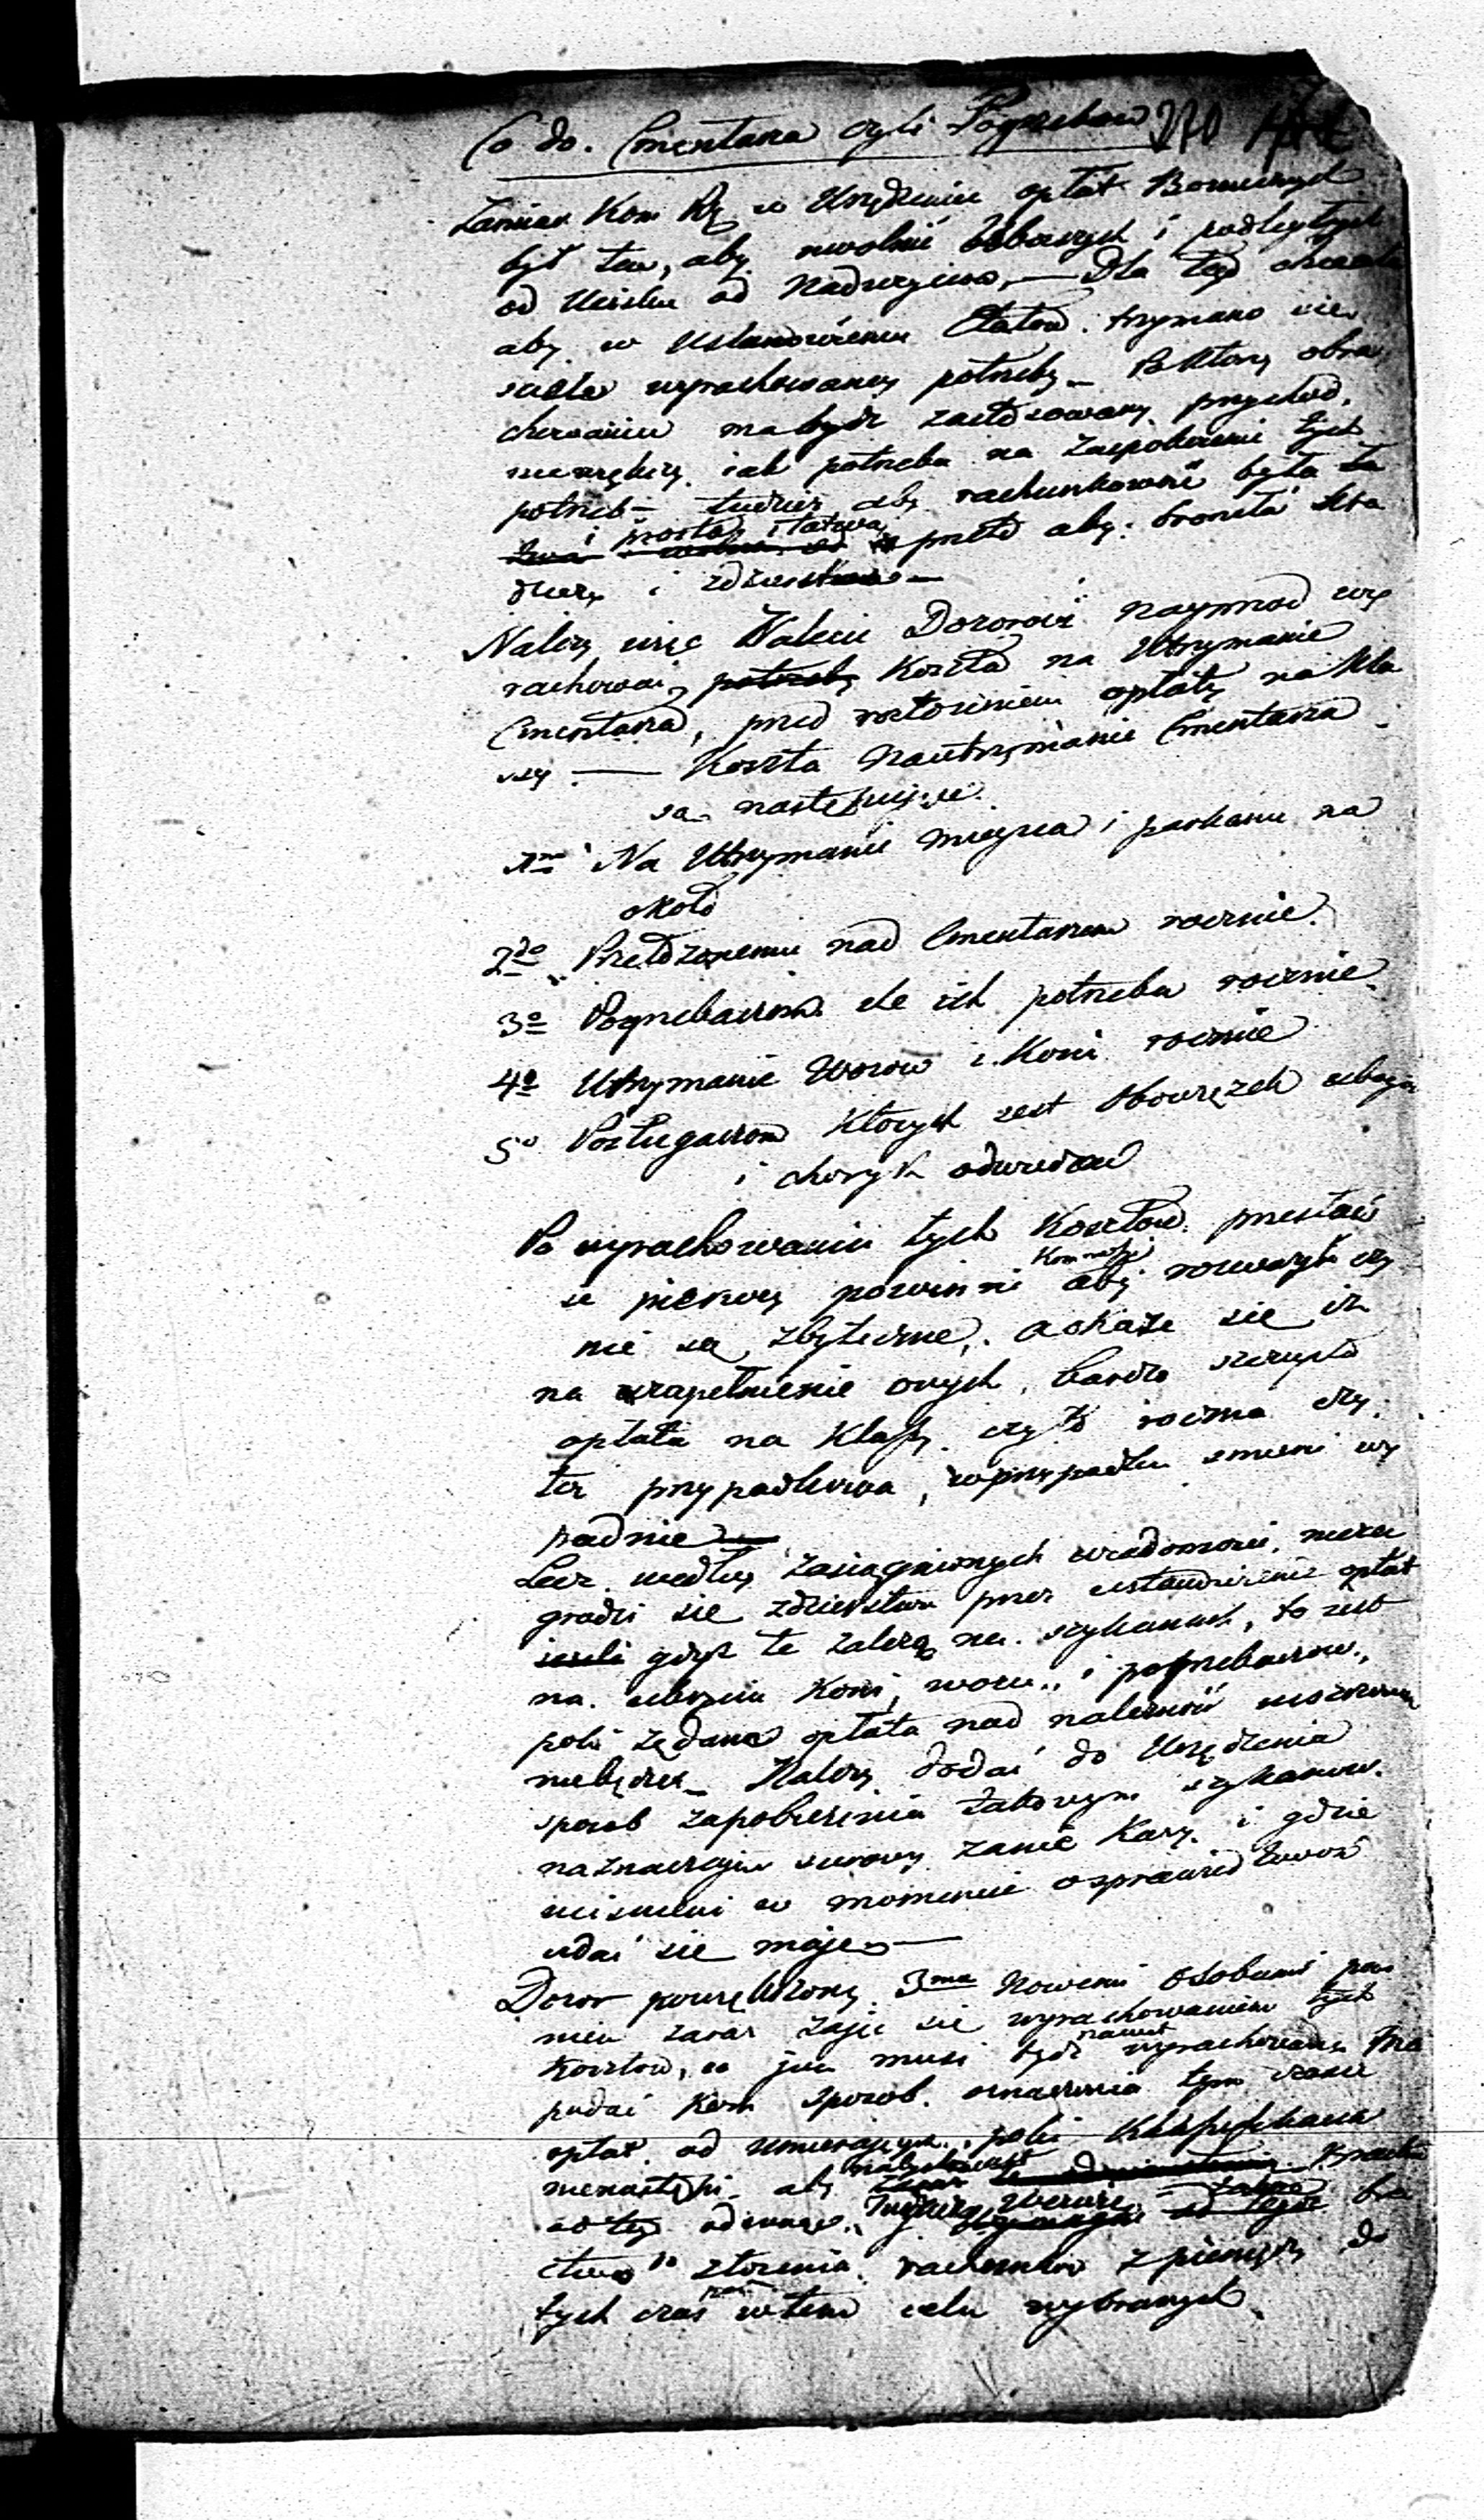 Co do. Cmentarza czyli Pogrzebow 270
Zamiar Kom Rz w Urządzeniu opłat Boznicznych
był ten, aby uwolnić Ubogich i podległych
od Ucisku od Nadużyciow, — Dla tego chciała
aby w Ustanowieniu Etatow. trzymano sie
sciśle wyrachowaney potrzeby — Po którey obra
chowaniu ma bydź zastosowany przychod,
niewiększy iak potrzeba na Zaspokoienie tych
potrzeb — tudzież aby rachunkowość była ła
twa i prosta i łatwa przeto aby broniła kra
dzieży i zdzierstwa —
Należy więc Kalecie Dozorowi nayprzod wy
rachować, potrzeby Koszta na Utrzymanie
Cmentarza, przed rozłożeniem opłaty na Kla
ssy — Koszta na utrzymanie Cmentarza
są następuiące.
1mo Na Utrzymanie mieysca i parkanu na
około
2do Przełożonemu nad Cmentarzem rocznie.
3o Pogrzebaczom ile ich potrzeba rocznie
4o Utrzymanie Wozow i Koni rocznie
5o Posługaczom których iest Obowiązek ubogich
i chorych odwiedzać
Po wyrachowaniu tych Kosztow. przesłać
ie pierwey powinni Kommissyi aby rozważyła czy
nie są zbyteczne, a okaże się iż
na zapełnienie onych, bardzo szczupła
opłata na Klassy czyto roczna czy
też przypadkowa, w przypadku smierci wy
padnie —
Lecz według zasiągnionych wiadomości, nieza
gradzi się zdzierstwu przez ustanowienie opłat
iezeli gdyż te zależą na szykanach, to iest
na ubyciu Koni, wozu, i pogrzebaczow,
poki żądana opłata nad należność uiszczona
niebędzie — Należy dodać do Urządzenia
sposob zapobieżenia takowym szykanom
naznaczaiąc surowe zanie Kary i gdzie
uciśnieni w momencie o sprawiedliwość
udać się maią —
Dozor powiększony 3ma Nowemi Osobami powi
nien zaraz zająć się wyrachowaniem tych
Kosztow, co już musi bydź nawet wyrachowane ma
podać Kom sposob. oznaczenia tym czasem
opłat od umieraiących, poki Klassyfikacia
nienastąpi — aby natychmiast
od tey odemnie. Bra
ctwo do złożenia rachunkow z pieniędzy do
tych czas w tem celu wybranych